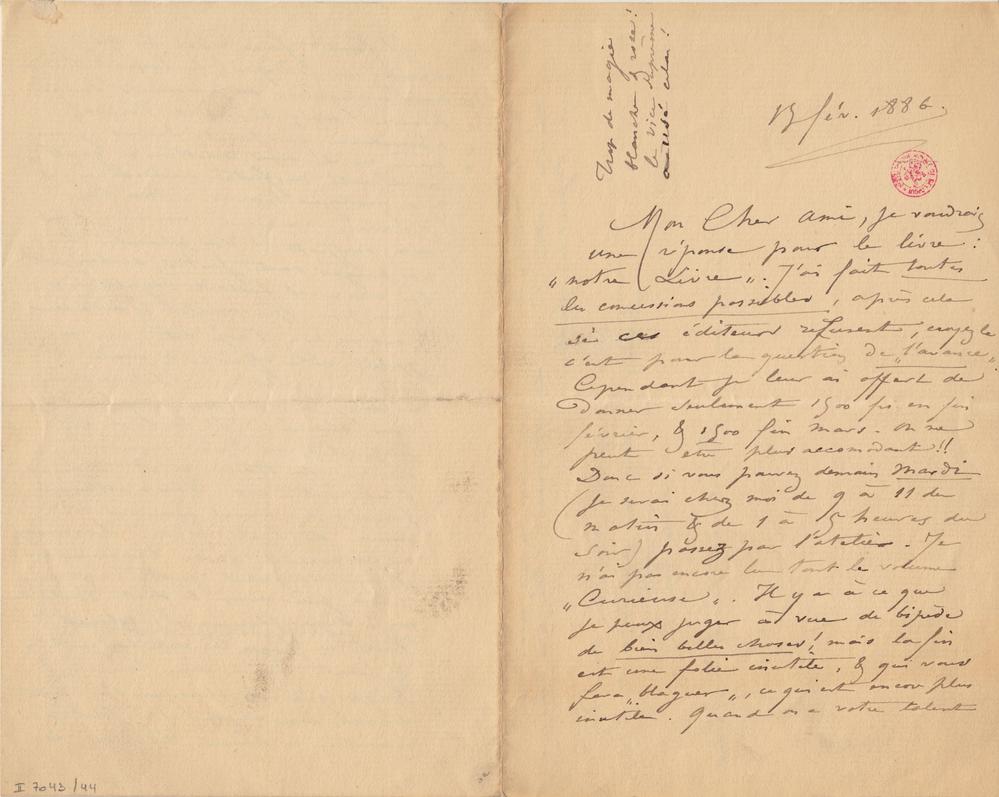 Trop de magie
blanche & rose!
le vice suprême
a usé cela!
15 fév. 1886.
Mon Cher Ami, je voudrais
une réponse pour le livre :
"notre Livre". J'ai fait toutes
les concessions possibles, après cela
si ces éditeurs refusent, croyez le
c'est pour la question de "l'avance".
Cependant je leur ai offert de
donner seulement 1500 frs en fin
février, & 1500 fin mars. On ne
peut être plus accomodant!!
Donc si vous pouvez demain Mardi
(je serai chez moi de 9 à 11 du
matin & de 1 à 5 heures du
soir) passez par l'atelier. Je
n'ai pas encore lu tout le volume
"Curieuse". Il y a à ce que
je peux juger à vue de bipède
de bien belles choses! mais la fin
est une folie inutile, & qui vous
fera "blaguer", ce qui est encore plus
inutile. Quand on a votre talent
II 7043 / 44